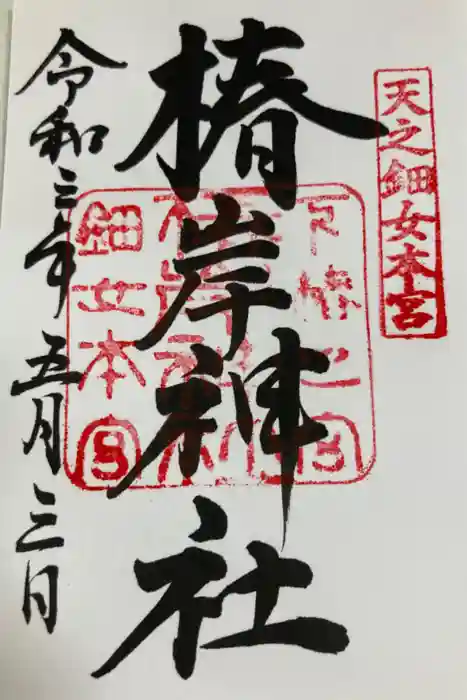 天之鈿女本宮
椿岸神社
鈿女本宮
令和三年五月三日